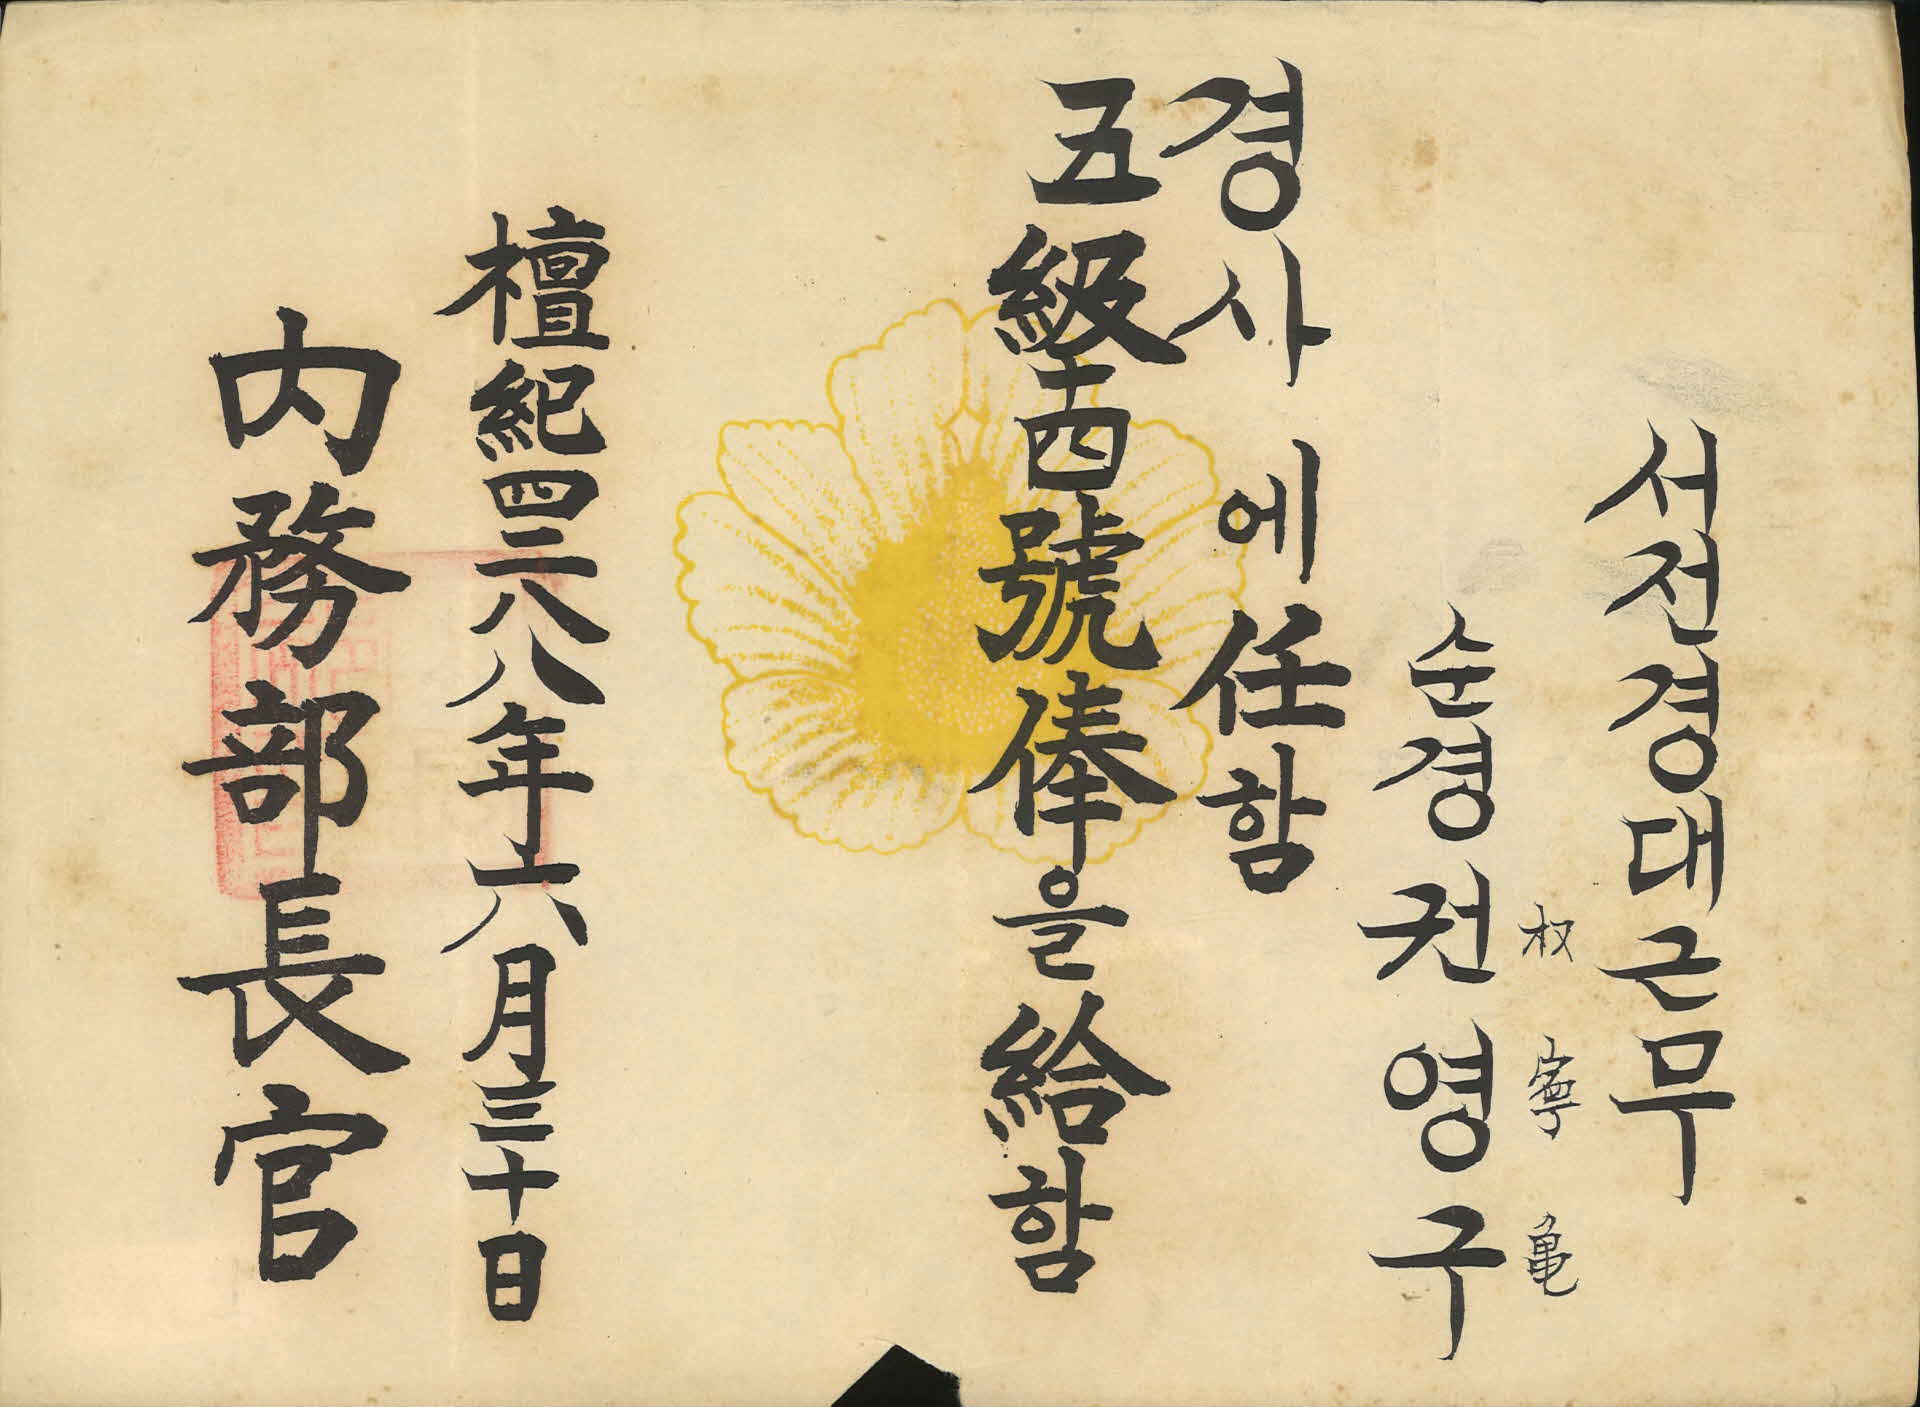 서전경대근무
순경 권영구
权寧亀
경사에任함
五級十四號俸을給함
檀紀四二八八年六月三十日
內務部長官